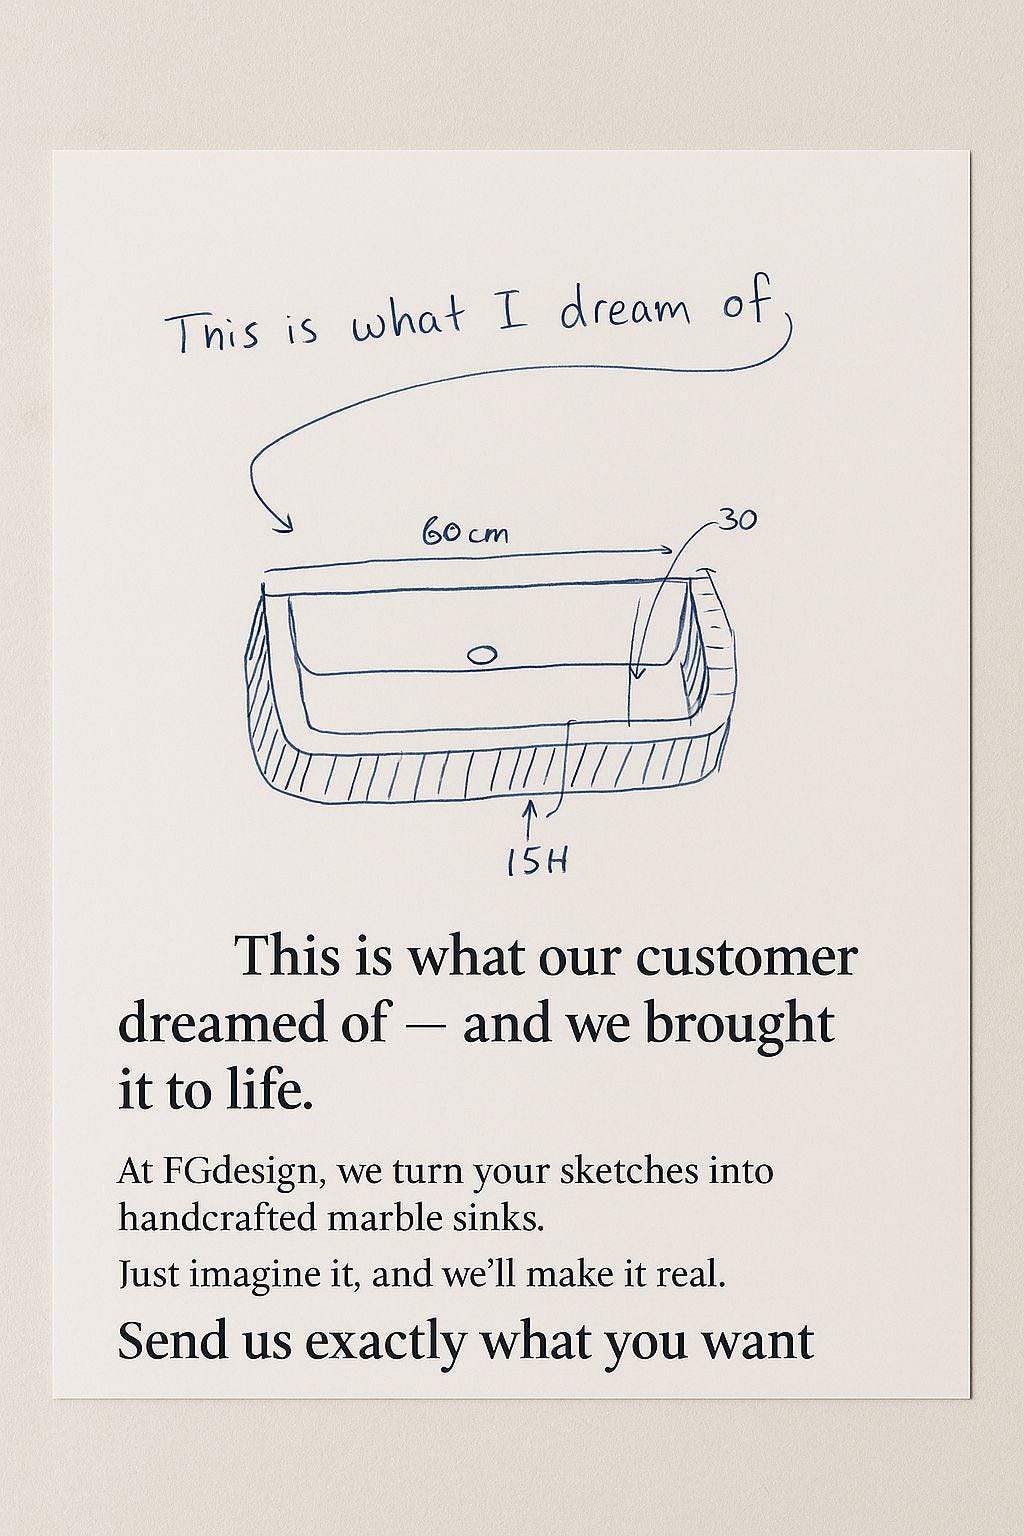 This is what I dream of
60 cm
30
15H
This is what our customer
dreamed of — and we brought
it to life.
At FGdesign, we turn your sketches into
handcrafted marble sinks.
Just imagine it, and we’ll make it real.
Send us exactly what you want